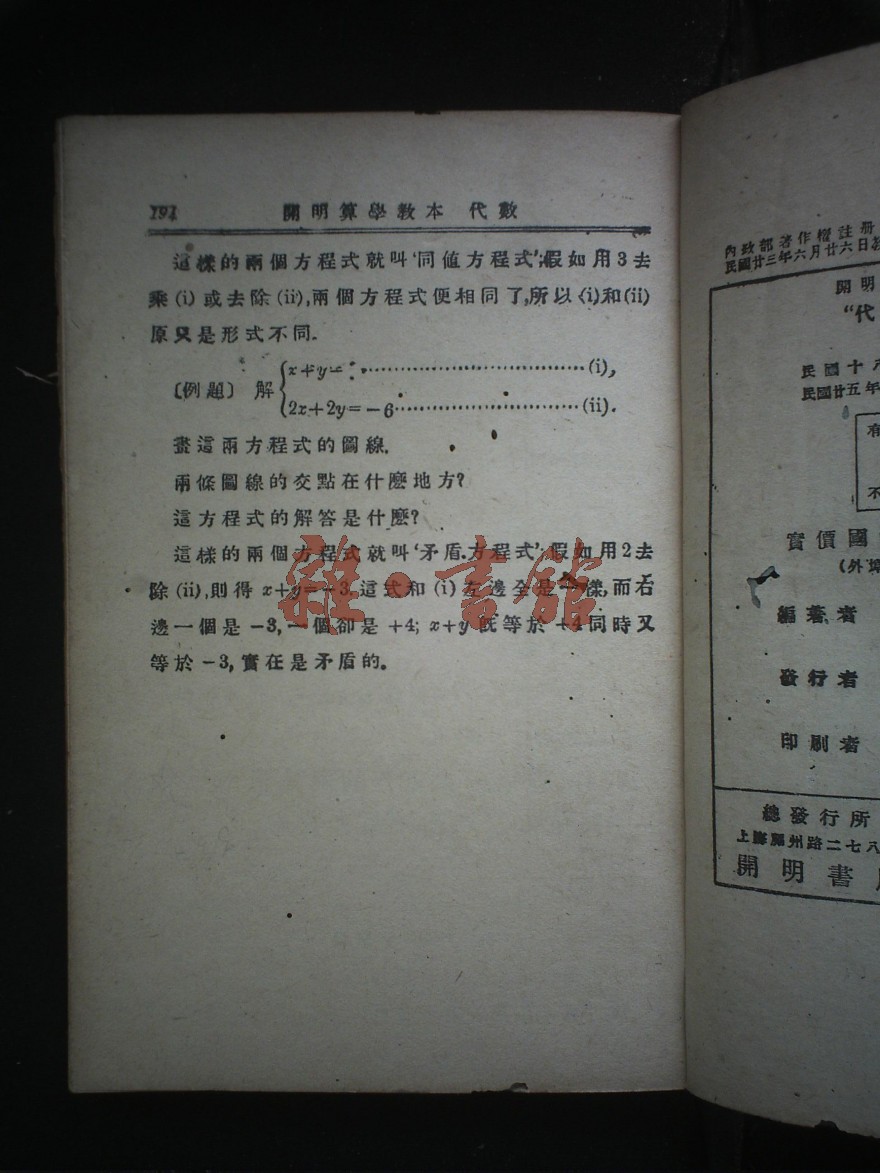 191 開明算學教本 代數
這樣的兩個方程式就叫‘同値方程式’;假如用3去
乘(i)或去除(ii),兩個方程式便相同了,所以(i)和(ii)
原只是形式不同.
〔例題〕 解
x+y= (i),
2x+2y=-6 (ii).
畫這兩方程式的圖線.
兩條圖線的交點在什麽地方?
這方程式的解答是什麽?
這樣的兩個方程式就叫‘矛盾方程式’;假如用2去
除(ii),則得x+y=-3,這式和(i)左邊全是一樣,而右
邊一個是-3,一個卻是+4; x+y旣等於+4同時又
等於-3,實在是矛盾的。
雜·書館
內政部著作權註冊
民國廿三年六月廿六日
開明
“代
民國十
民國廿五年
有
不
實價國
(外埠
編著者
發行者
印刷者
總發行所
上海福州路二七八
開明書